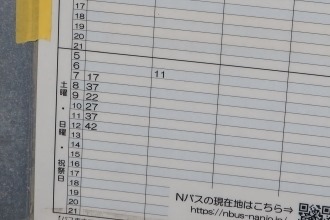 17
18
19
20
21
5
6
7 17 11
8 37
9 22
10 27
11 37
12 42
13
14
15
16
17
18
19
20
21
土曜・日曜・祝祭日
Nバスの現在地はこちら⇒